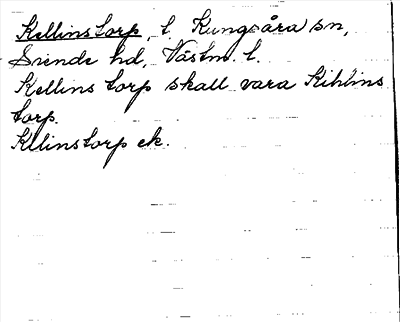 Kellinstorp, t. Kungsåra sn,
Siende hd, Västm. l.
Kellins torp skall vara Kihlins
torp.
Kllinstorp ek.